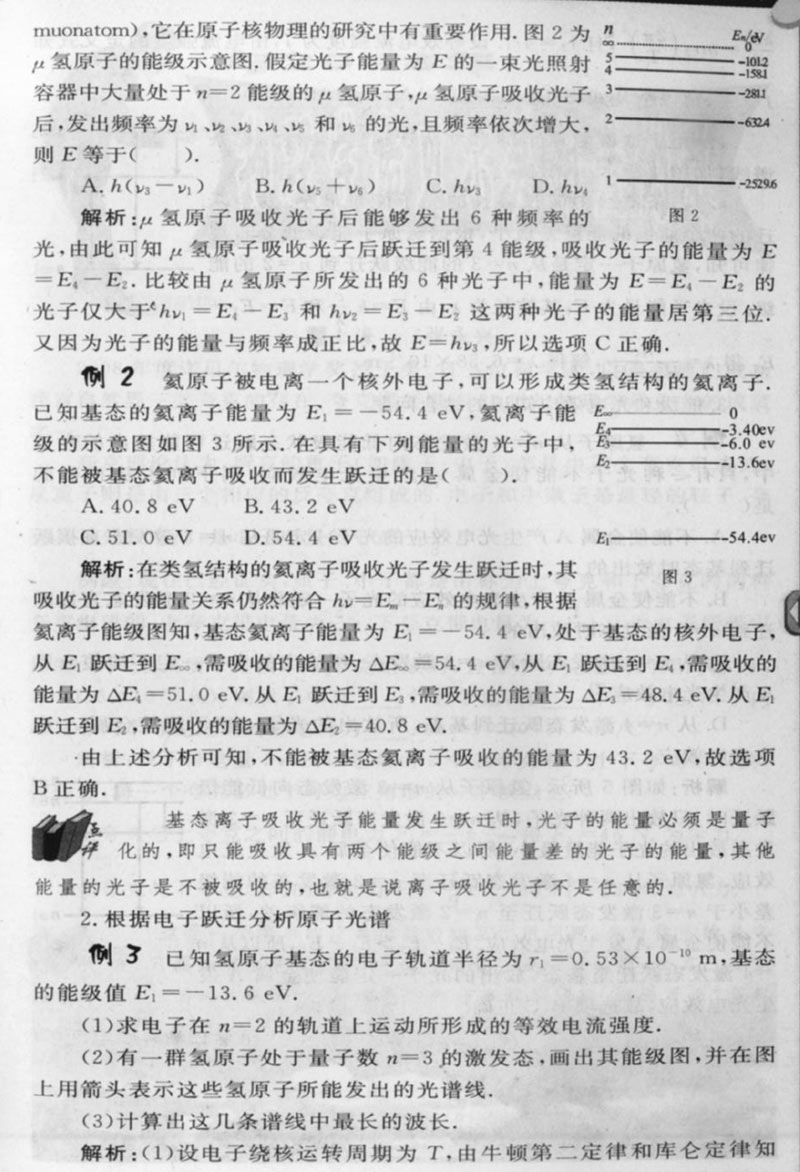 muonatom),它在原子核物理的研究中有重要作用.图 2 为
μ 氢原子的能级示意图.假定光子能量为 E 的一束光照射
容器中大量处于 n=2 能级的 μ 氢原子,μ 氢原子吸收光子
后,发出频率为 ν₁、ν₂、ν₃、ν₄、ν₅ 和 ν₆ 的光,且频率依次增大,
则 E 等于(　　).
A. h(ν₃-ν₁)　B. h(ν₅+ν₆)　C. hν₃　D. hν₄
n　Eₙ/eV
∞　0
5　-101.2
4　-158.1
3　-281.1
2　-632.4
1　-2529.6
图 2
解析:μ 氢原子吸收光子后能够发出 6 种频率的
光,由此可知 μ 氢原子吸收光子后跃迁到第 4 能级,吸收光子的能量为 E
=E₄-E₂. 比较由 μ 氢原子所发出的 6 种光子中,能量为 E=E₄-E₂ 的
光子仅大于 hν₁=E₄-E₃ 和 hν₂=E₃-E₂ 这两种光子的能量居第三位.
又因为光子的能量与频率成正比,故 E=hν₃,所以选项 C 正确.
例 2　氦原子被电离一个核外电子,可以形成类氢结构的氦离子.
已知基态的氦离子能量为 E₁=-54.4 eV,氦离子能
级的示意图如图 3 所示.在具有下列能量的光子中,
不能被基态氦离子吸收而发生跃迁的是(　　).
A. 40.8 eV　B. 43.2 eV
C. 51.0 eV　D. 54.4 eV
E∞　0
E₄　-3.40ev
E₃　-6.0 ev
E₂　-13.6ev
E₁　-54.4ev
图 3
解析:在类氢结构的氦离子吸收光子发生跃迁时,其
吸收光子的能量关系仍然符合 hν=Eₘ-Eₙ 的规律,根据
氦离子能级图知,基态氦离子能量为 E₁=-54.4 eV,处于基态的核外电子,
从 E₁ 跃迁到 E∞,需吸收的能量为 ΔE∞=54.4 eV,从 E₁ 跃迁到 E₄,需吸收的
能量为 ΔE₄=51.0 eV.从 E₁ 跃迁到 E₃,需吸收的能量为 ΔE₃=48.4 eV.从 E₁
跃迁到 E₂,需吸收的能量为 ΔE₂=40.8 eV.
由上述分析可知,不能被基态氦离子吸收的能量为 43.2 eV,故选项
B 正确.
点评　基态离子吸收光子能量发生跃迁时,光子的能量必须是量子
化的,即只能吸收具有两个能级之间能量差的光子的能量,其他
能量的光子是不被吸收的,也就是说离子吸收光子不是任意的.
2.根据电子跃迁分析原子光谱
例 3　已知氢原子基态的电子轨道半径为 r₁=0.53×10⁻¹⁰ m,基态
的能级值 E₁=-13.6 eV.
(1)求电子在 n=2 的轨道上运动所形成的等效电流强度.
(2)有一群氢原子处于量子数 n=3 的激发态,画出其能级图,并在图
上用箭头表示这些氢原子所能发出的光谱线.
(3)计算出这几条谱线中最长的波长.
解析:(1)设电子绕核运转周期为 T,由牛顿第二定律和库仑定律知